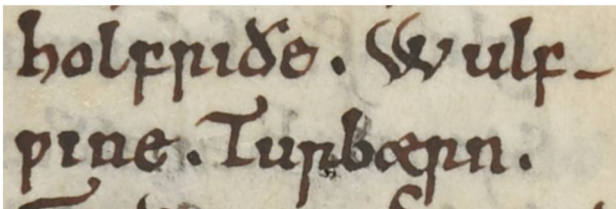 holfriðe. Wulf-
ƿine. Turbærn.